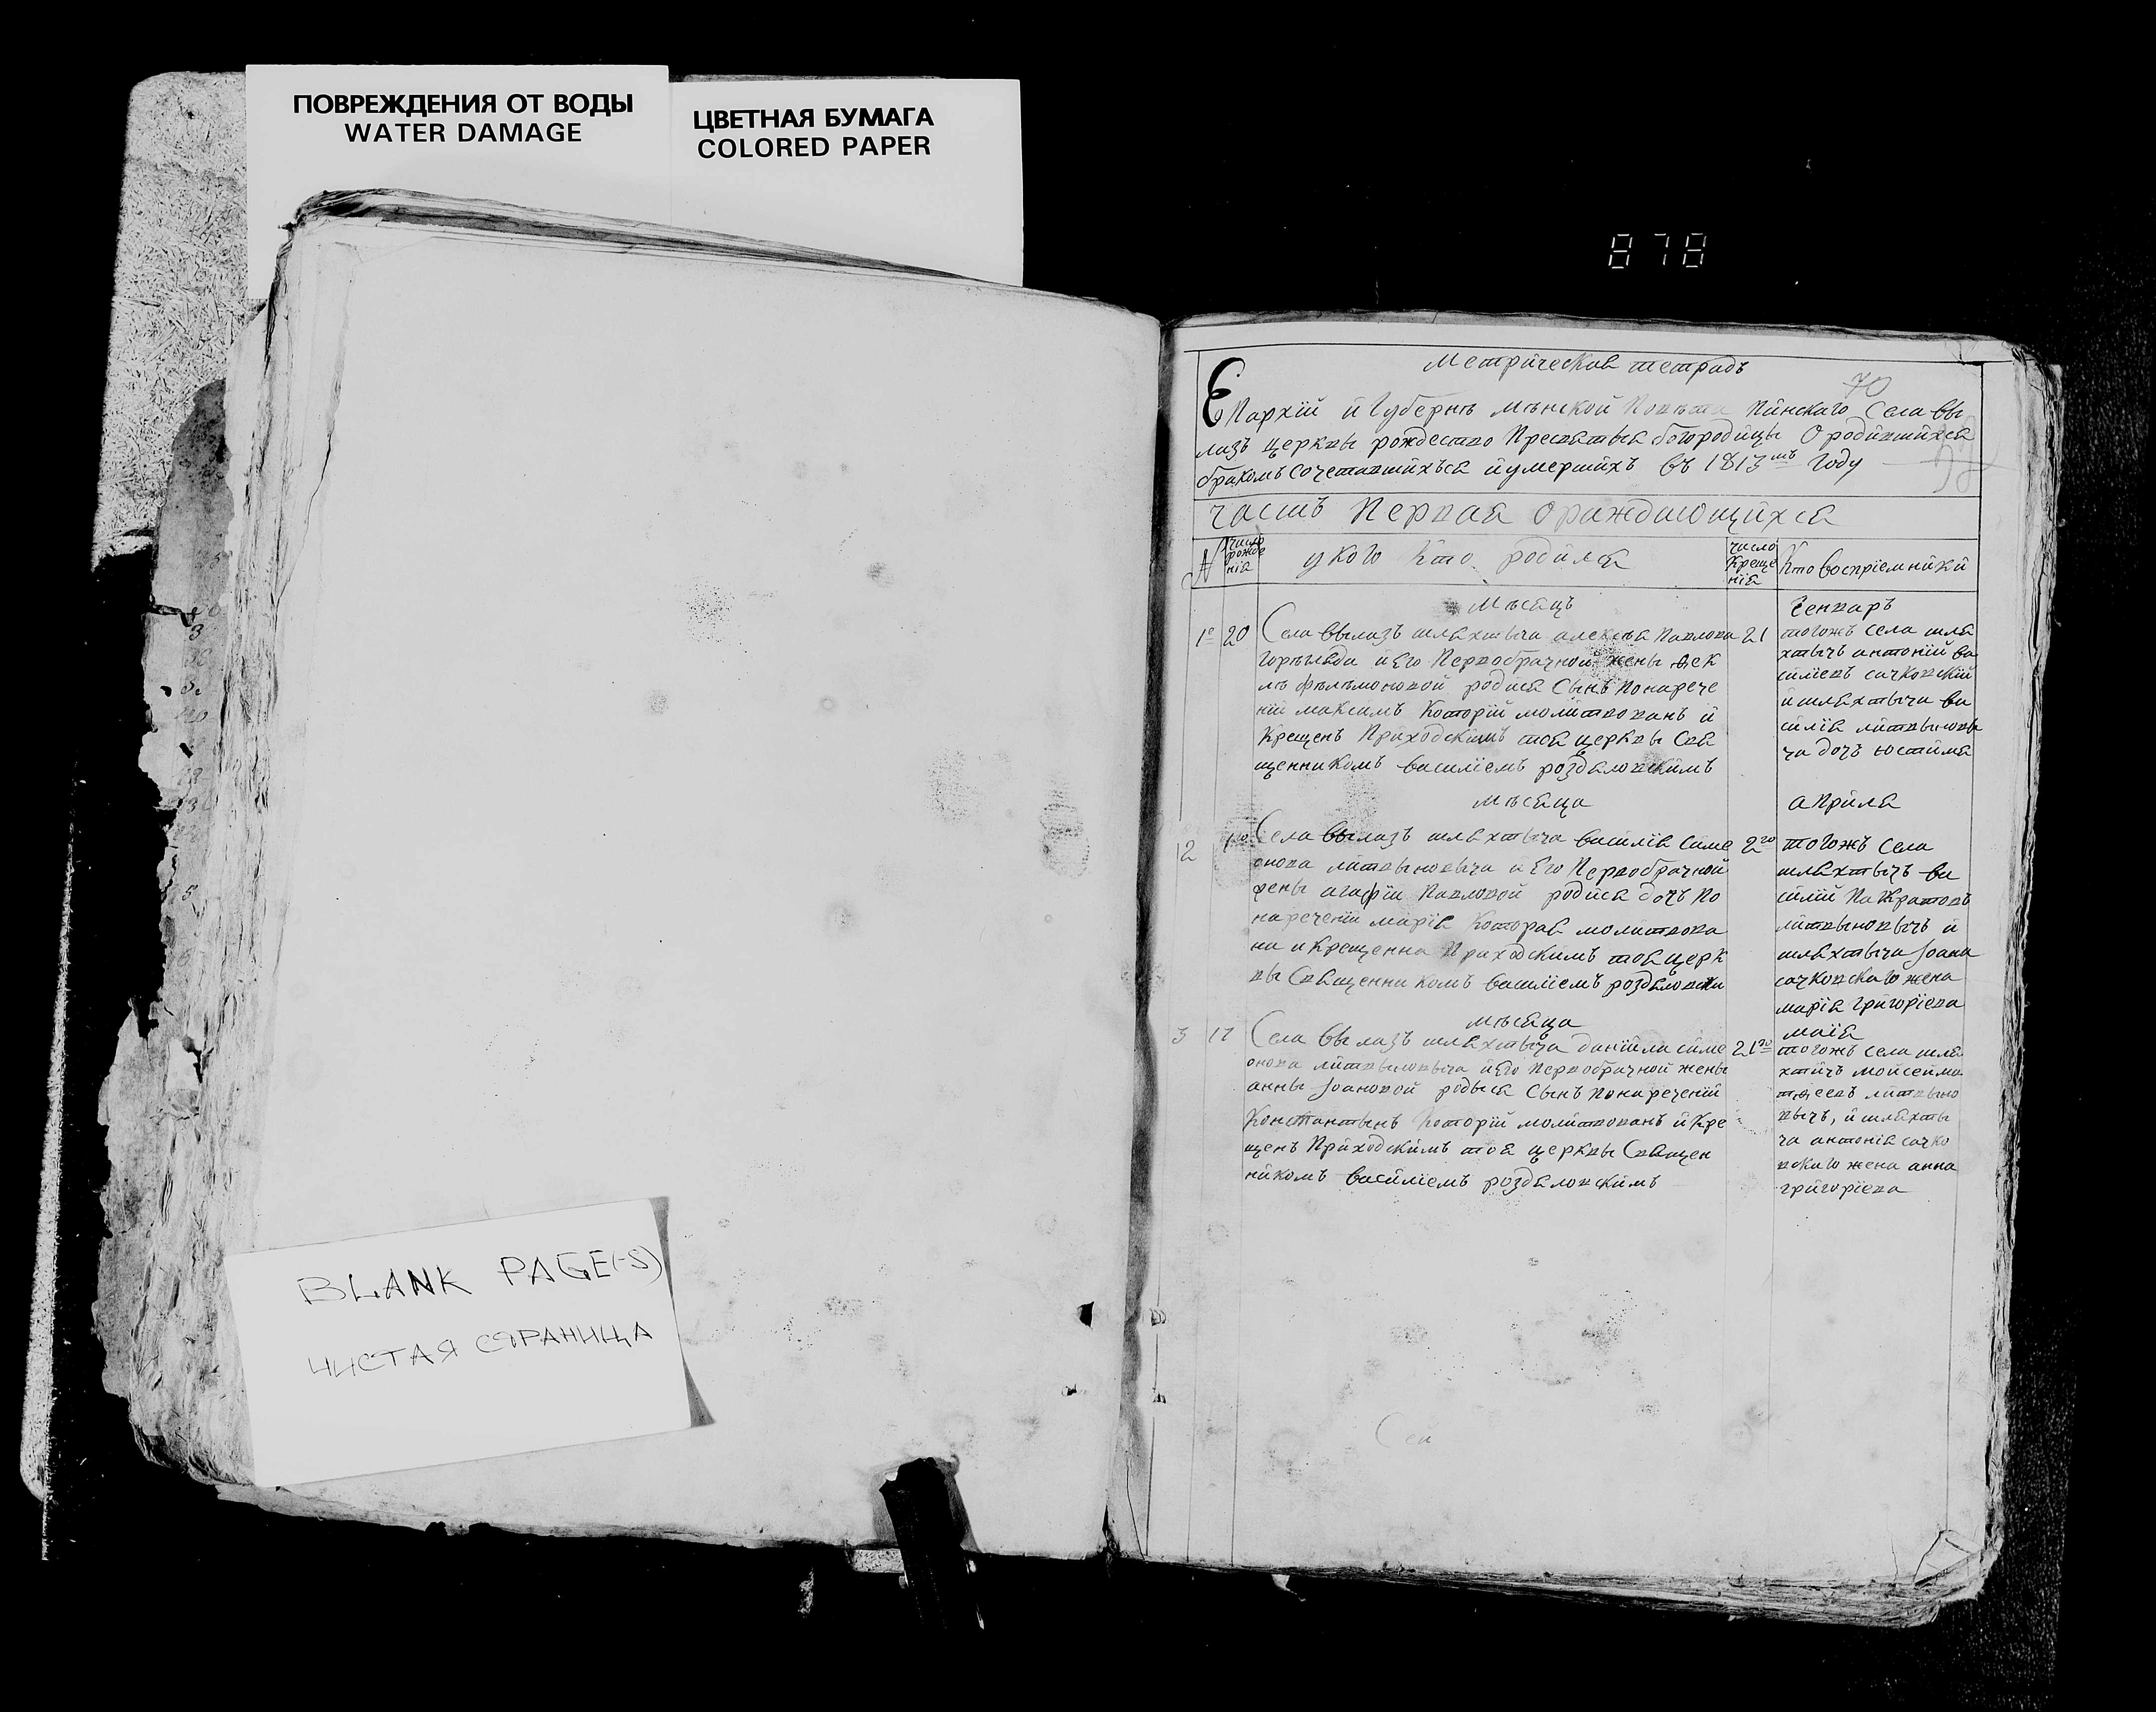 ПОВРЕЖДЕНИЯ ОТ ВОДЫ
WATER DAMAGE
ЦВЕТНАЯ БУМАГА
COLORED PAPER
878
Метрическая тетрадь
70
Епархїй и Губернѣ мѣнской Повѣта Пинскаго Села вы
лазъ церквы рождество Пресвятыя богородицы О родившихся
бракомъ сочетавшихъся и умершихъ въ 1813мъ году
часть Первая О раждающихся
№
число рожде нїя
у кого кто родился
число Креще нїя
Кто воспрїемники
Мѣсяцъ
Генваръ
1о 20 Села вылазъ шляхтыча алексѣя Павлова 21
и Его Первобрачной жены фек
лѣ родися Сынъ Понарече
нїи максимъ Которїй молитвованъ и
Крещенъ Приходскимъ тоя церквы Свя
щенникомъ василїемъ роздяловскимъ
тогожъ села шля
хтычъ антонїй ва
силїевъ сачковскїй
и шляхтыча ва
силїя литвынови
ча дочъ юстиня
мѣсяца
априля
2 1го Села вылазъ шляхтыча василїя симе 2го
онова литвыновыча и Его Первобрачной
жены агафїи Павловой родися дочъ По
наречении марїя Которая молитвова
на и Крещенна Приходскимъ тоя церк
вы Священникомъ василїемъ роздяловски
тогожъ села
шляхтычъ ва
силїй Пакратовъ
литвыновычъ и
шляхтыча Іоана
сачковскаго жена
марїя григорїева
мѣсяца
маїя
3 17 Села вылазъ шляхтыча данїила симе 21го
онова литвыновыча и Его Первобрачной жены
анны Іоановой родыся Сынъ Понареченїи
Константынъ Которїй молитвованъ и Кре
щенъ Приходскимъ тоя церквы Священ
никомъ василїемъ роздяловскимъ
тогожъ села шля
хтичъ мойсей ма
тѳеевъ литвыно
вычъ, и шляхты
ча антонїя сачко
вскаго жена анна
григорїева
BLANK PAGE(-S)
ЧИСТАЯ СТРАНИЦА